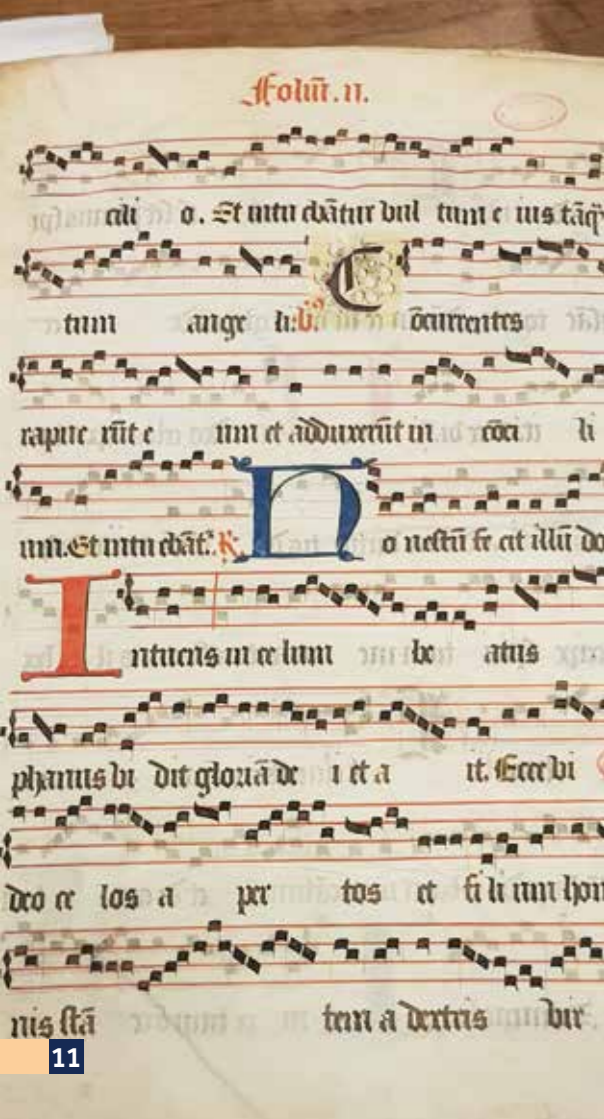 Foliū. II.
cili o. Et intu ebātur vul tum e ius tāq̄
tum ange li: v̓. C ōcurrentes
rapue rūt e um et adduxerūt in cōci li
um. Et intu ebāt᷑. R̓. H o nestū fe cit illū do
I ntuens in ce lum be atus
phanus vi dit gloriā de i et a it. Ecce vi
deo ce los a per tos et fi li um hom
nis stā tem a dextris vir
11